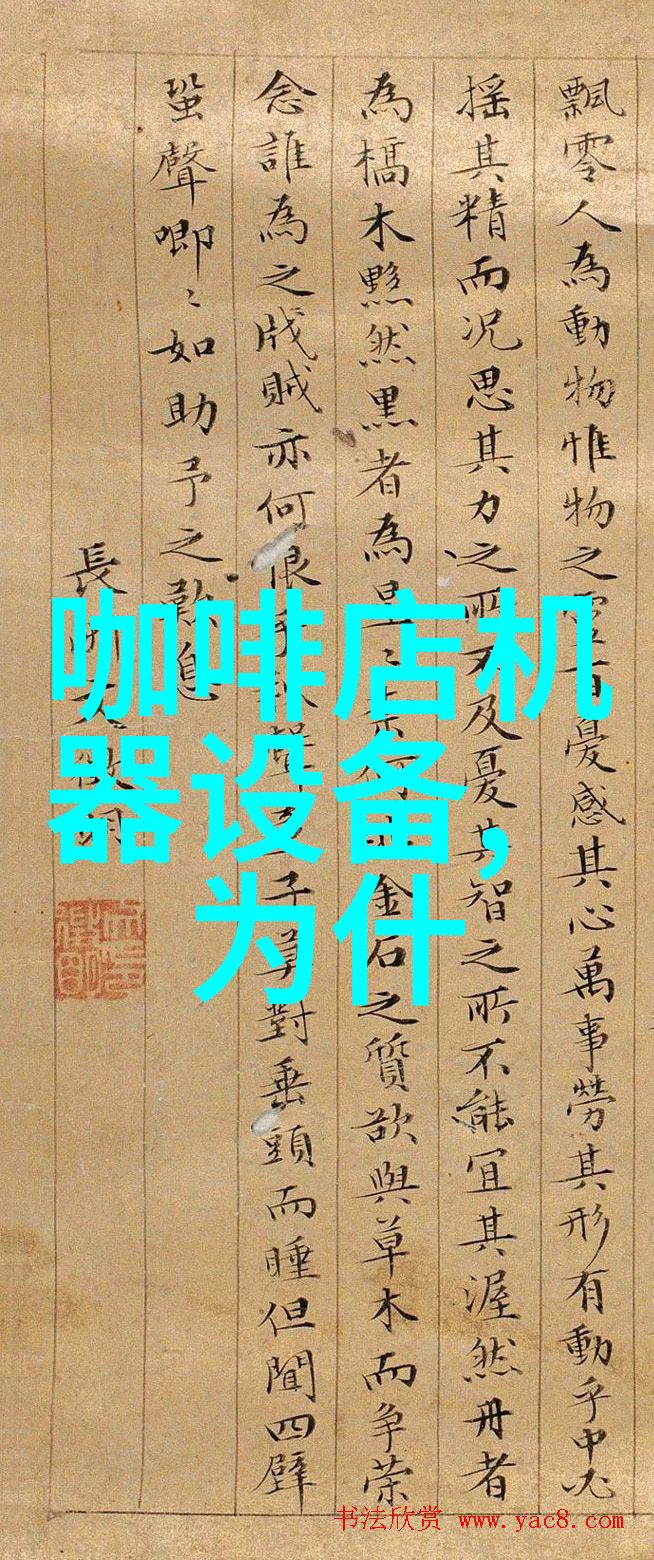 飄零人為動物惟物之靈百憂感其心萬事勞其形有動乎中必
搖其精而况思其力之所不及憂其智之所不能宜其渥然丹者
為槁木黟然黑者為星〻奈何非金石之質欲與草木而争荣
念誰為之戕賊亦何恨乎秋聲童子莫對垂頭而睡但聞四壁
蛩聲唧〻如助予之歎息
長洲文徵明
咖啡店机
器设备,
为什
书法欣赏 www.yac8.com